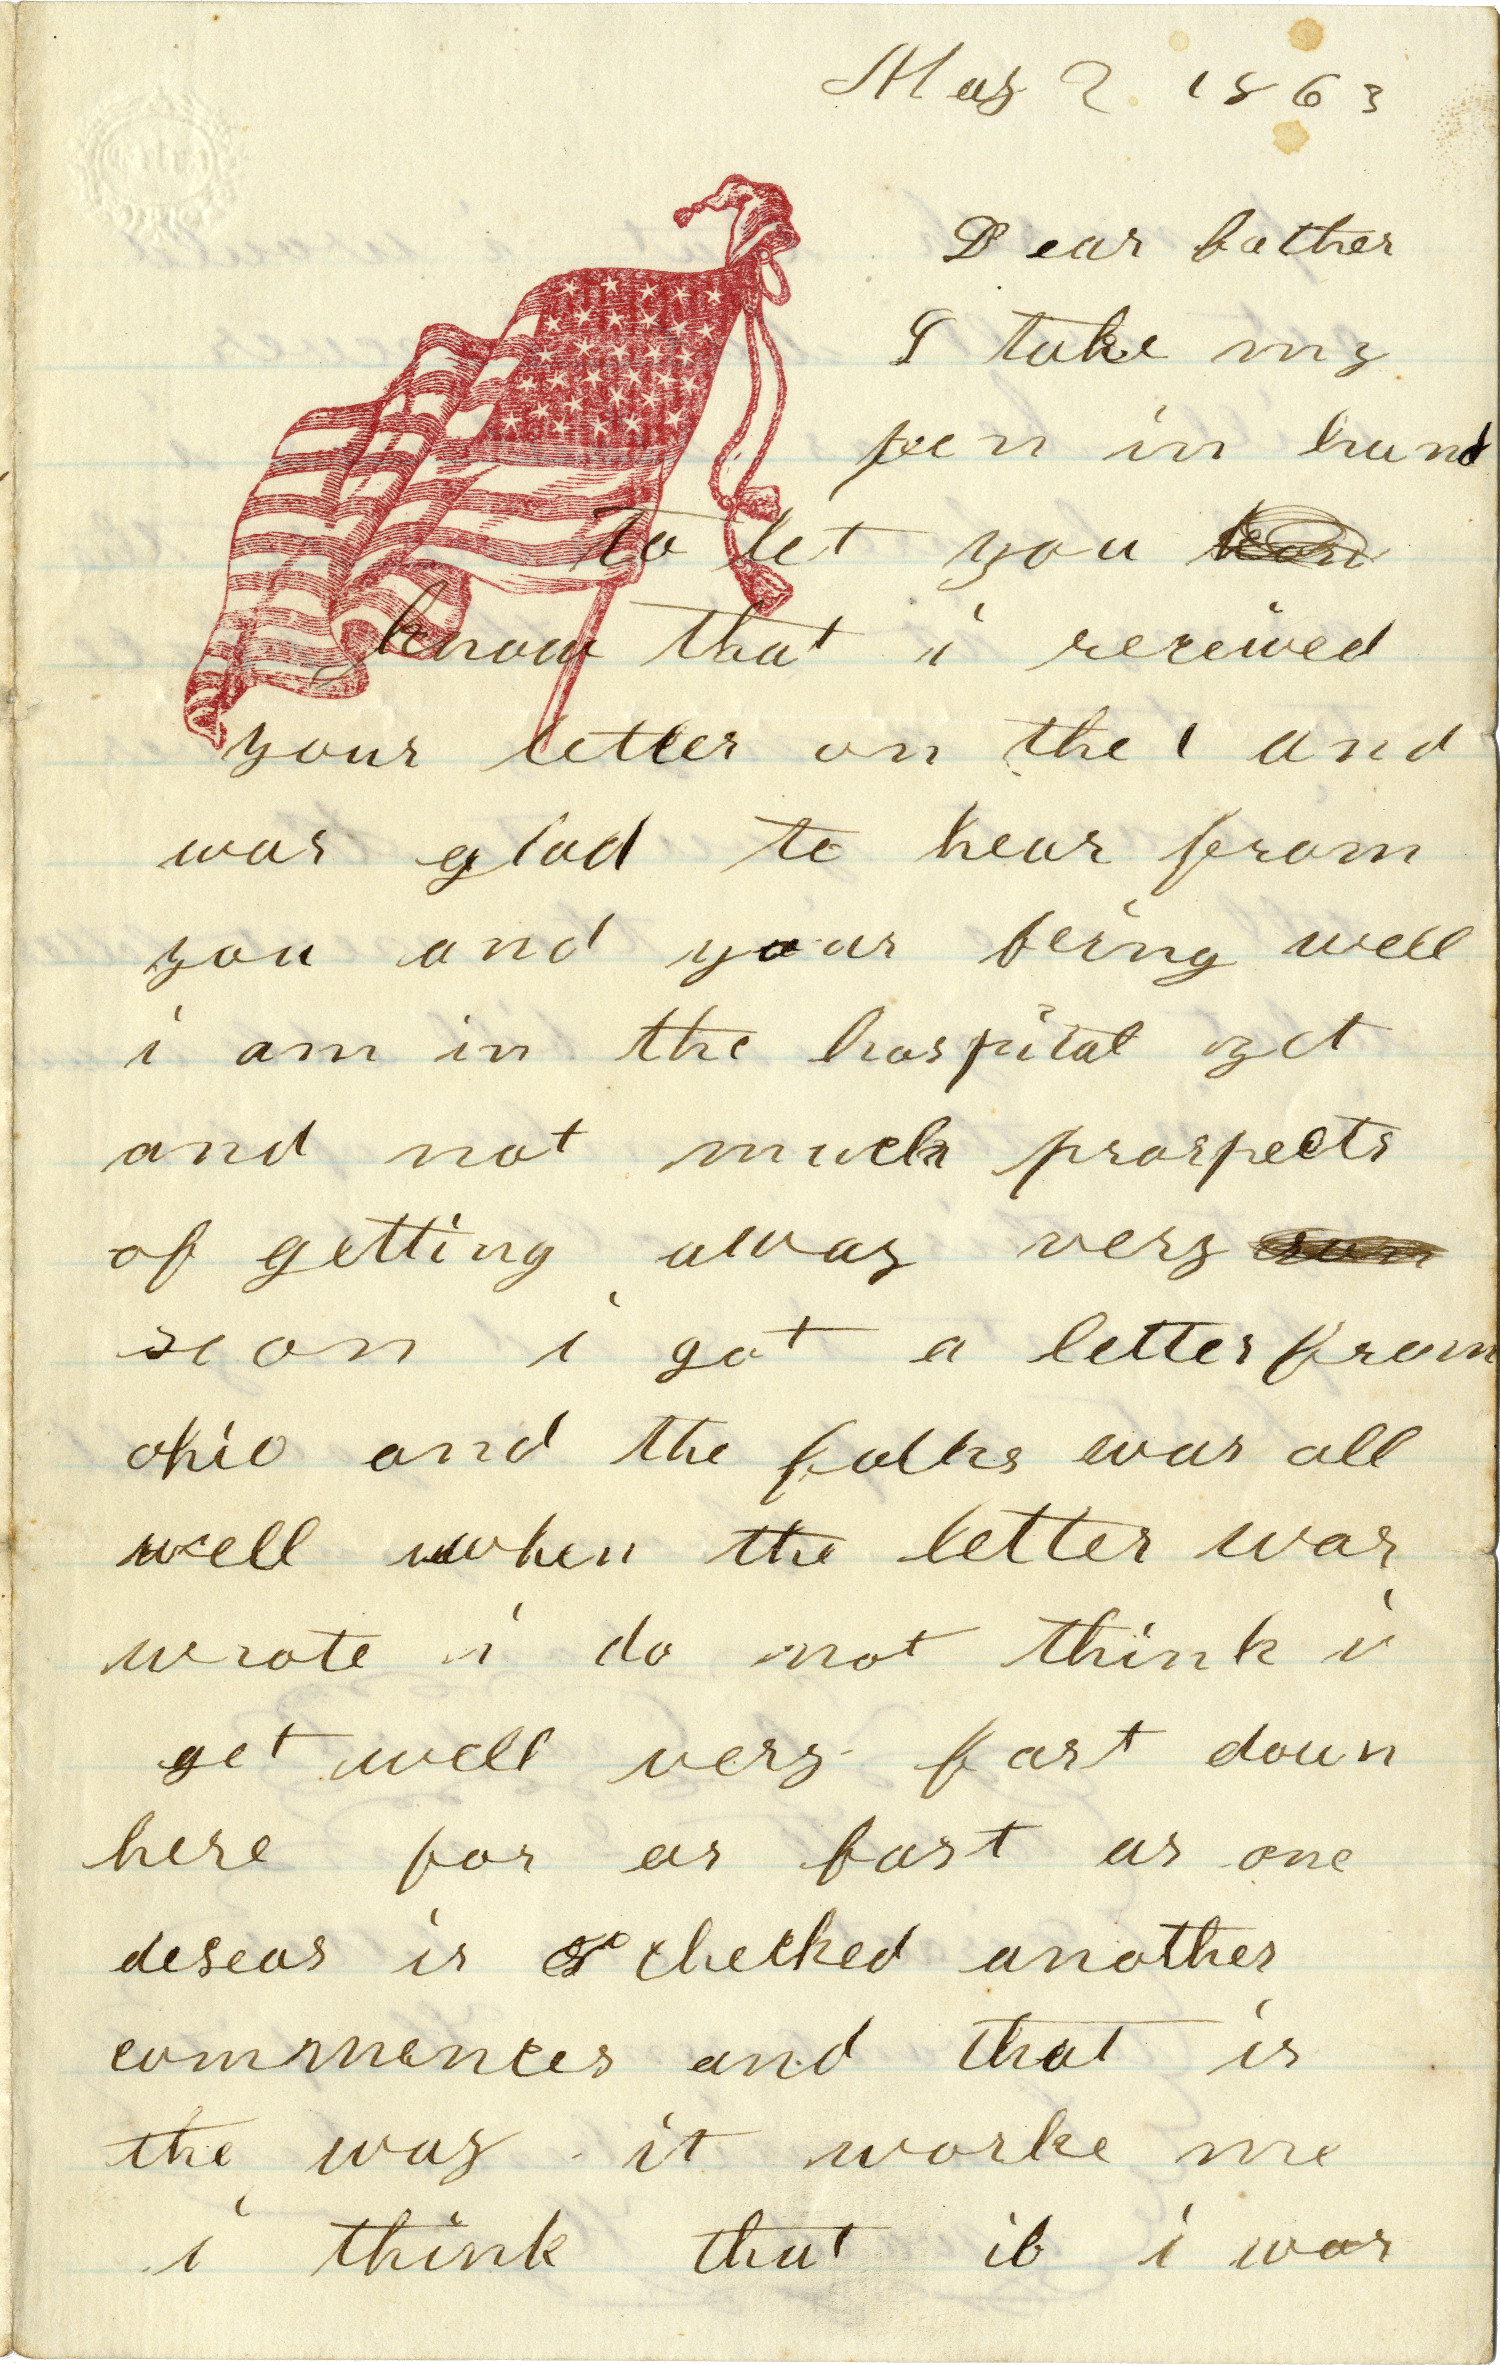 May 2 1863
Dear father
I take my
pen in hand
to let you
know that i received
your letter on the 1 and
was glad to hear from
you and your being well
i am in the hospital yet
and not much prospects
of getting away very
soon i got a letter from
ohio and the folks was all
well when the letter was
wrote i do not think i
get well very fast down
here for as fast as one
deseas is checked another
commences and that is
the way it worke me
i think that if i was